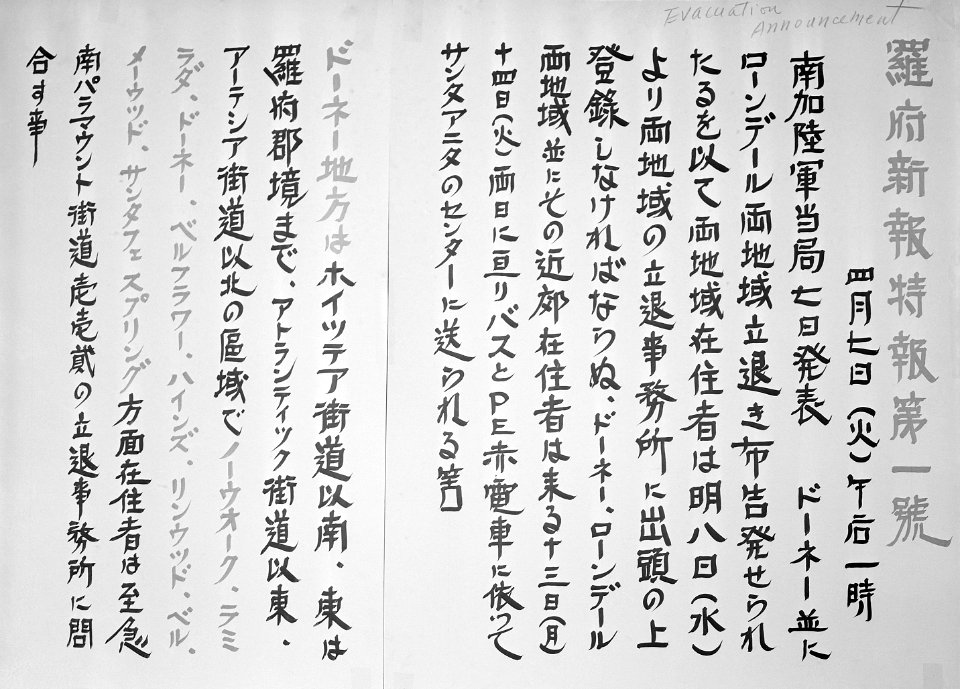 Evacuation
Announcement
羅府新報特報第一號
四月七日(火)午后一時
南加陸軍当局七日発表 ドーネー並に
ローンデール両地域立退き布告発せられ
たるを以て両地域在住者は明八日(水)
より両地域の立退事務所に出頭の上
登録しなければならぬ、ドーネー、ローンデール
両地域並にその近郊在住者は来る十三日(月)
十四日(火)両日に亘りバスとPE赤電車に依って
サンタアニタのセンターに送られる筈
ドーネー地方はホイッテア街道以南、東は
羅府郡境まで、アトランティック街道以東、
アーテシア街道以北の區域でノーウオーク、テミ
ラダ、ドーネー、ベルフラワー、ハインズ、リンウッド、ベル、
メーウッド、サンタフェスプリング方面在住者は至急
南パラマウント街道壱壱貳の立退事務所に問
合す事